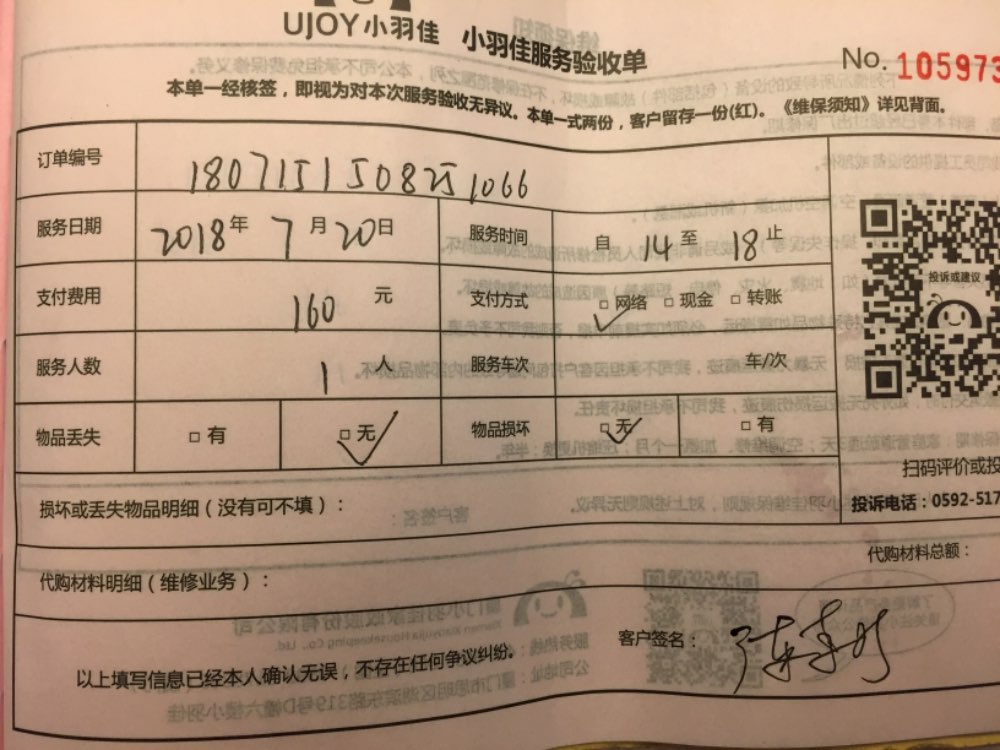 UJOY小羽佳 小羽佳服务验收单
No. 105973
本单一经核签，即视为对本次服务验收无异议。本单一式两份，客户留存一份(红)。《维保须知》详见背面。
订单编号 1807151508251066
服务日期 2018年 7月20日 服务时间 自 14 至 18 止
支付费用 160 元 支付方式 □网络 □现金 □转账
服务人数 1 人 服务车次 车/次
物品丢失 □有 □无 物品损坏 □无 □有
投诉或建议
扫码评价或投
损坏或丢失物品明细（没有可不填）：
投诉电话：0592-517
代购材料明细（维修业务）：
代购材料总额：
以上填写信息已经本人确认无误，不存在任何争议纠纷。
客户签名：